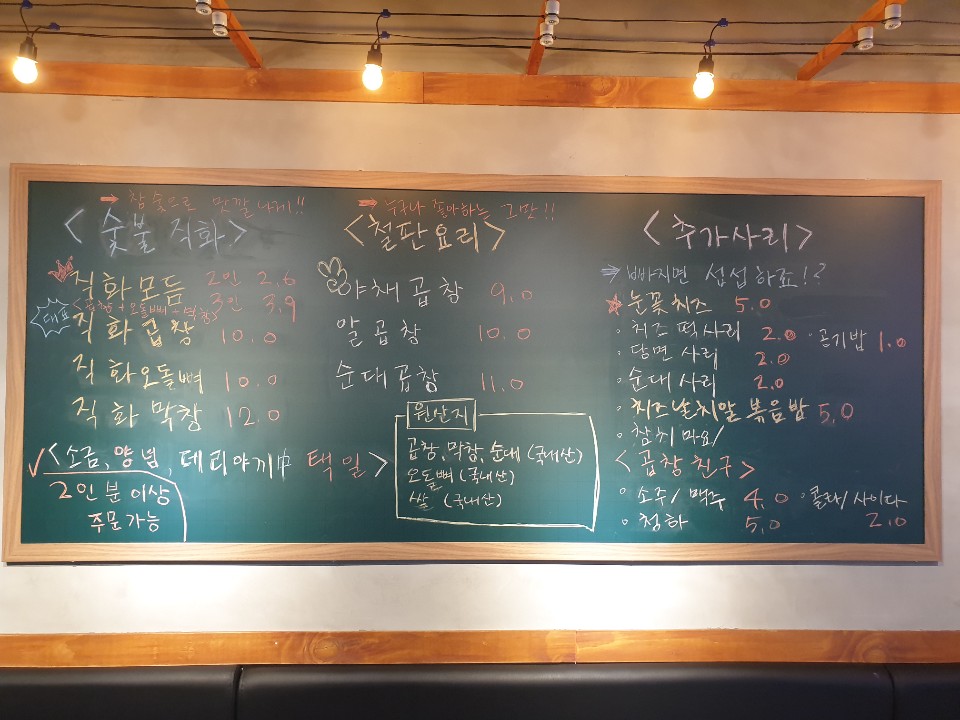 → 참숯으로 맛깔나게!!
<숯불 직화>
직화모듬 2인 2.6
3인 3.9
<곱창+오돌뼈+막창>
대표
직화곱창 10.0
직화오돌뼈 10.0
직화막창 12.0
✓<소금, 양념, 데리야끼中 택일>
2인분 이상
주문가능
→ 누구나 좋아하는 그맛!!
<철판요리>
야채곱창 9.0
알곱창 10.0
순대곱창 11.0
원산지
곱창, 막창, 순대 (국내산)
오돌뼈 (국내산)
쌀 (국내산)
<추가사리>
⇒ 빠지면 섭섭하죠!?
★눈꽃치즈 5.0
·치즈떡사리 2.0 ·공기밥 1.0
·당면사리 2.0
·순대사리 2.0
·치즈날치알볶음밥 5.0
·참치마요/
<곱창친구>
·소주/맥주 4.0 ·콜라/사이다
2.0
·청하 5.0